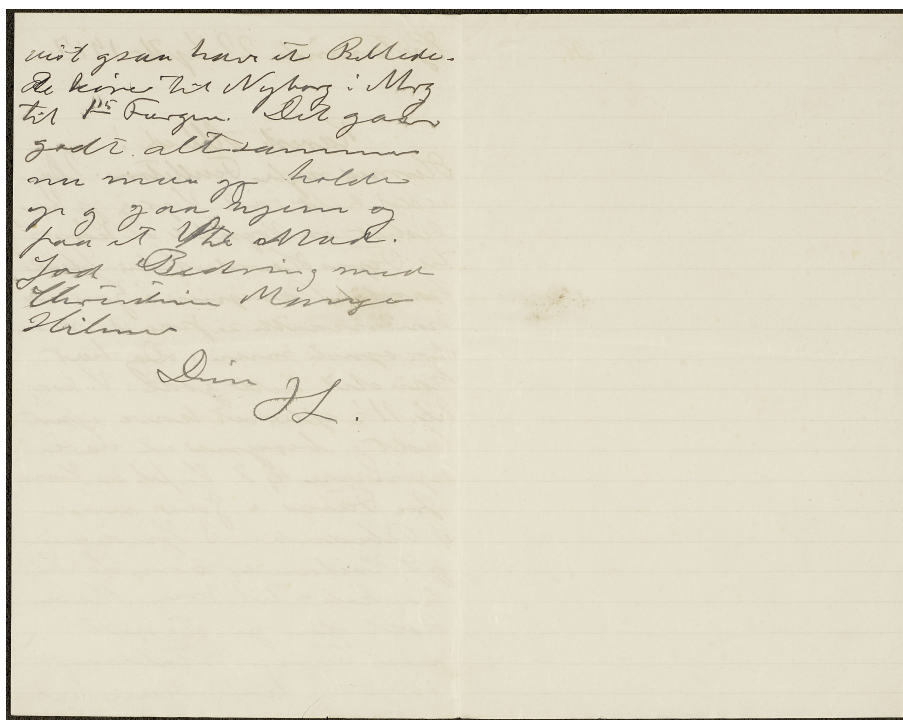 vist ogsaa have et Billede.
De kører til Nyborg i Mrg
til 1ste Færgen. Det gaar
godt altsammen
nu maa jeg holde
op og gaa hjem og
faa et Mad.
God Bedring med
Christine Mange
Hilsner
Din
JL.